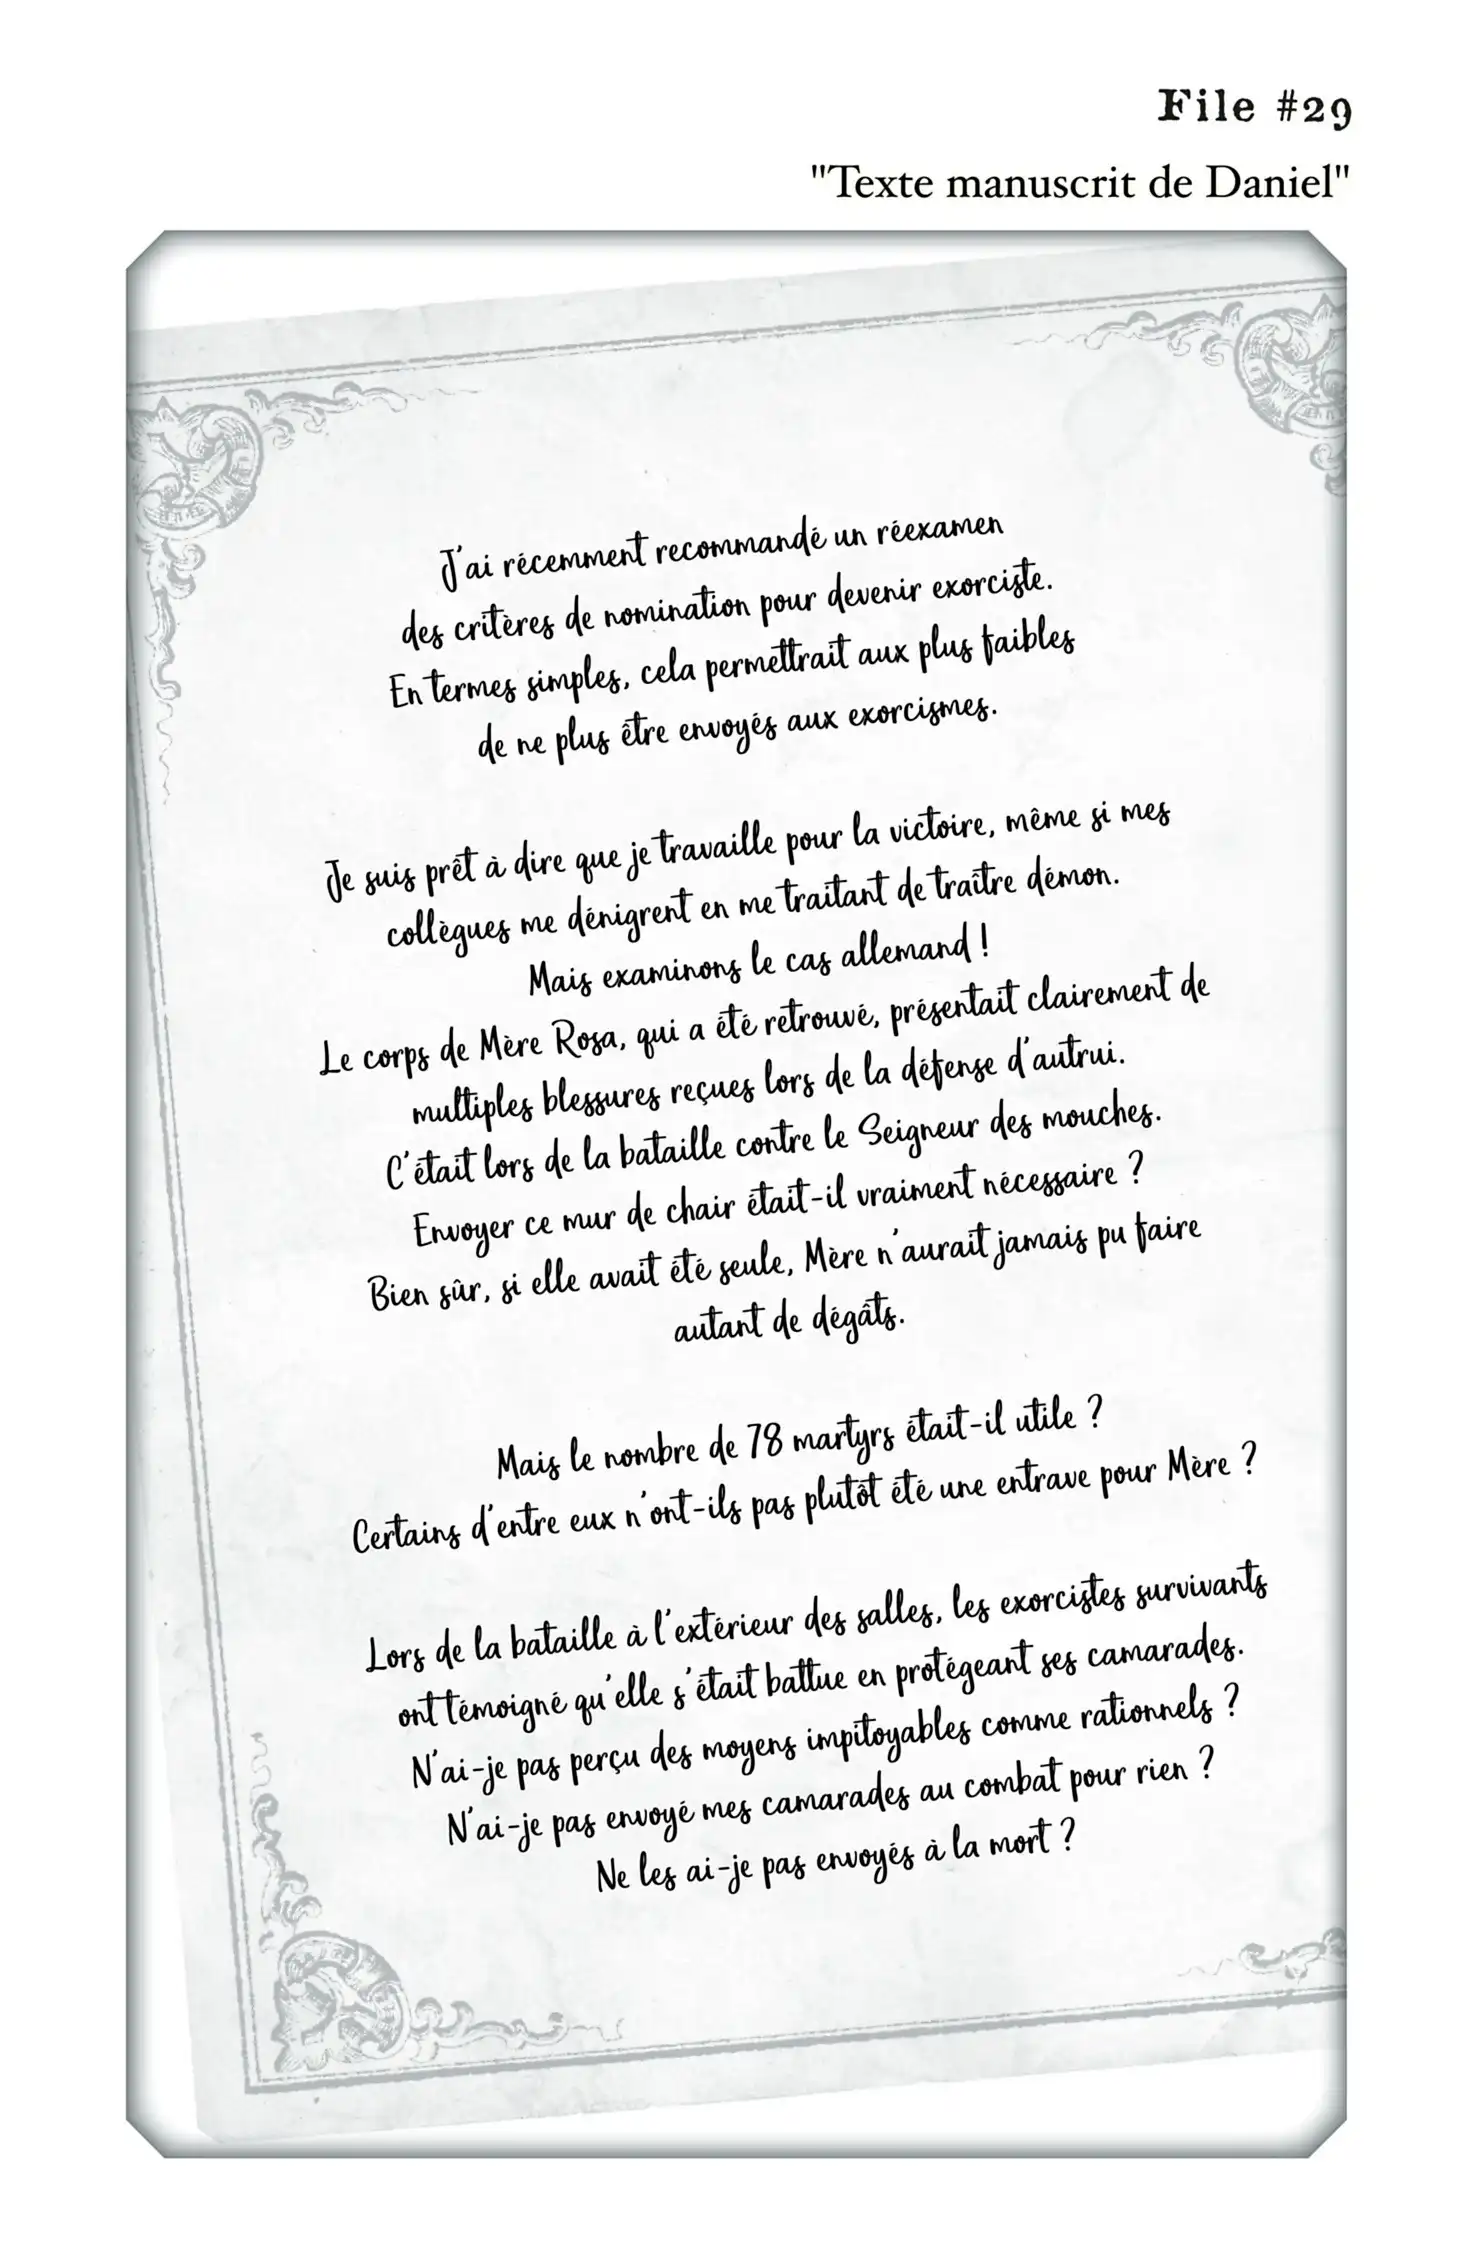 File #29
"Texte manuscrit de Daniel"
J'ai récemment recommandé un réexamen
des critères de nomination pour devenir exorciste.
En termes simples, cela permettrait aux plus faibles
de ne plus être envoyés aux exorcismes.
Je suis prêt à dire que je travaille pour la victoire, même si mes
collègues me dénigrent en me traitant de traître démon.
Mais examinons le cas allemand !
Le corps de Mère Rosa, qui a été retrouvé, présentait clairement de
multiples blessures reçues lors de la défense d'autrui.
C'était lors de la bataille contre le Seigneur des mouches.
Envoyer ce mur de chair était-il vraiment nécessaire ?
Bien sûr, si elle avait été seule, Mère n'aurait jamais pu faire
autant de dégâts.
Mais le nombre de 78 martyrs était-il utile ?
Certains d'entre eux n'ont-ils pas plutôt été une entrave pour Mère ?
Lors de la bataille à l'extérieur des salles, les exorcistes survivants
ont témoigné qu'elle s'était battue en protégeant ses camarades.
N'ai-je pas perçu des moyens impitoyables comme rationnels ?
N'ai-je pas envoyé mes camarades au combat pour rien ?
Ne les ai-je pas envoyés à la mort ?